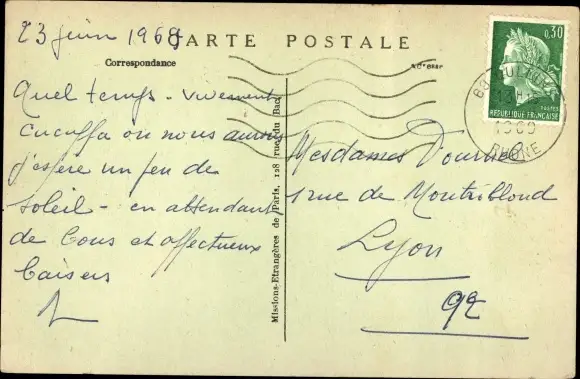 23 juin 1969
CARTE POSTALE
Correspondance
Quel temps - vivement
Cucuffa où nous aurons
j'espère un peu de
soleil - en attendant
de bons et affectueux
baisers
Missions-Etrangères de Paris, 128 rue du Bac
0,30
REPUBLIQUE FRANÇAISE
1969
RHONE
Mesdames
rue de
Lyon